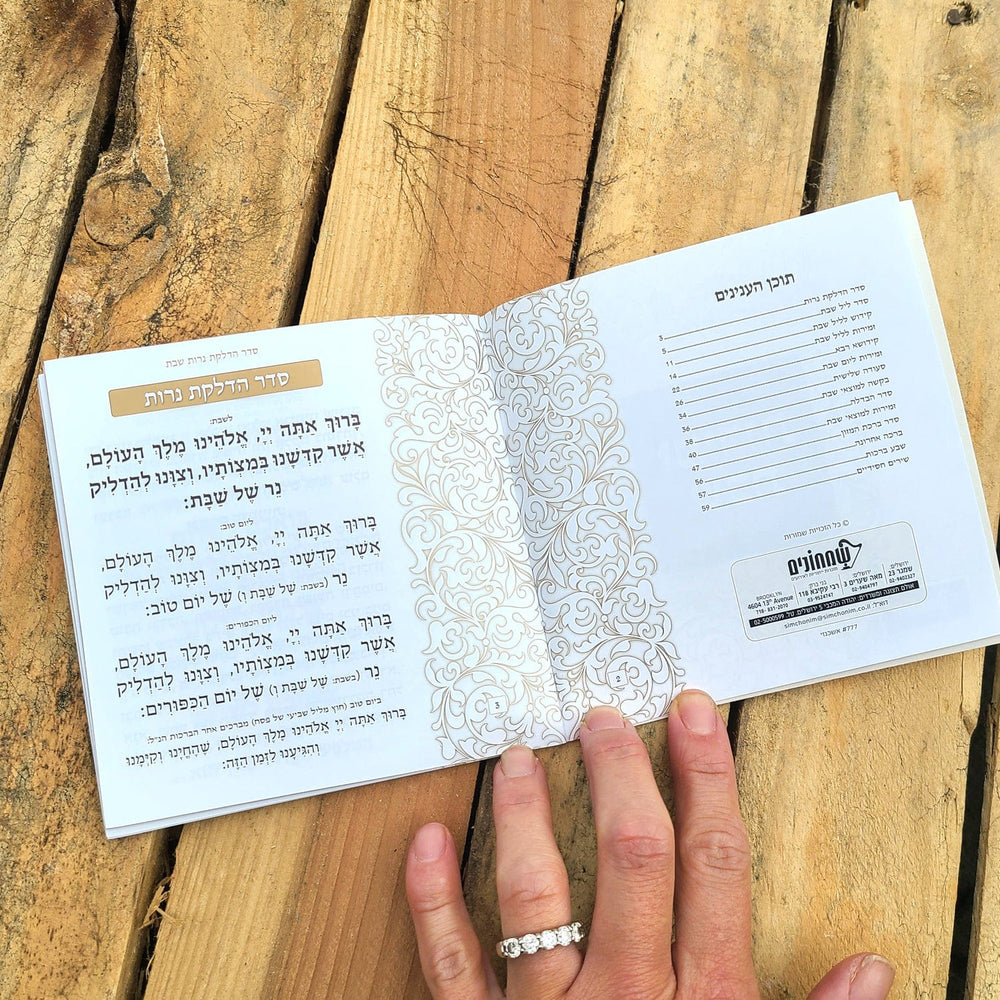 תוכן הענינים
סדר הדלקת נרות 3
סדר ליל שבת 5
קידוש לליל שבת 11
זמירות לליל שבת 14
קידושא רבא 22
זמירות ליום שבת 26
סעודה שלישית 34
בקשה למוצאי שבת 36
סדר הבדלה 38
זמירות למוצאי שבת 40
סדר ברכת המזון 47
ברכה אחרונה 56
שבע ברכות 57
שירים חסידיים 59
© כל הזכויות שמורות
שמחונים
ירושלים: שמגר 23 02-9402327
ירושלים: מאה שערים 3 02-9404797
בני ברק: רבי עקיבא 118 03-9524747
BROOKLYN 4604 13th Avenue 718-831-2070
אולם תצוגה ומשרדים: יהודה המכבי 5 ירושלים. טל. 02-5000599
דוא"ל: simchonim@simchonim.co.il
#777 אשכנזי
2
סדר הדלקת נרות שבת
סדר הדלקת נרות
לשבת:
בָּרוּךְ אַתָּה יְיָ, אֱלֹהֵינוּ מֶלֶךְ הָעוֹלָם,
אֲשֶׁר קִדְּשָׁנוּ בְּמִצְוֹתָיו, וְצִוָּנוּ לְהַדְלִיק
נֵר שֶׁל שַׁבָּת:
ליום טוב:
בָּרוּךְ אַתָּה יְיָ, אֱלֹהֵינוּ מֶלֶךְ הָעוֹלָם,
אֲשֶׁר קִדְּשָׁנוּ בְּמִצְוֹתָיו, וְצִוָּנוּ לְהַדְלִיק
נֵר (בשבת: שֶׁל שַׁבָּת וְ) שֶׁל יוֹם טוֹב:
ליום הכפורים:
בָּרוּךְ אַתָּה יְיָ, אֱלֹהֵינוּ מֶלֶךְ הָעוֹלָם,
אֲשֶׁר קִדְּשָׁנוּ בְּמִצְוֹתָיו, וְצִוָּנוּ לְהַדְלִיק
נֵר (בשבת: שֶׁל שַׁבָּת וְ) שֶׁל יוֹם הַכִּפּוּרִים:
ביום טוב (חוץ מליל שביעי של פסח) מברכים אחר הברכות הנ"ל:
בָּרוּךְ אַתָּה יְיָ אֱלֹהֵינוּ מֶלֶךְ הָעוֹלָם, שֶׁהֶחֱיָנוּ וְקִיְּמָנוּ
וְהִגִּיעָנוּ לַזְּמַן הַזֶּה:
3